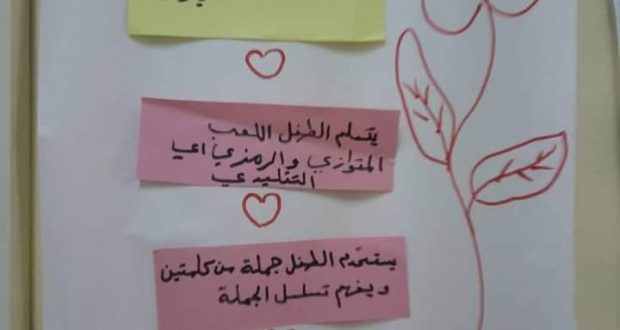 يتعلم الطفل اللعب
المتوازي والرمزي اي
التقليدي
يستخدم الطفل جملة من كلمتين
ويفهم تسلسل الجملة